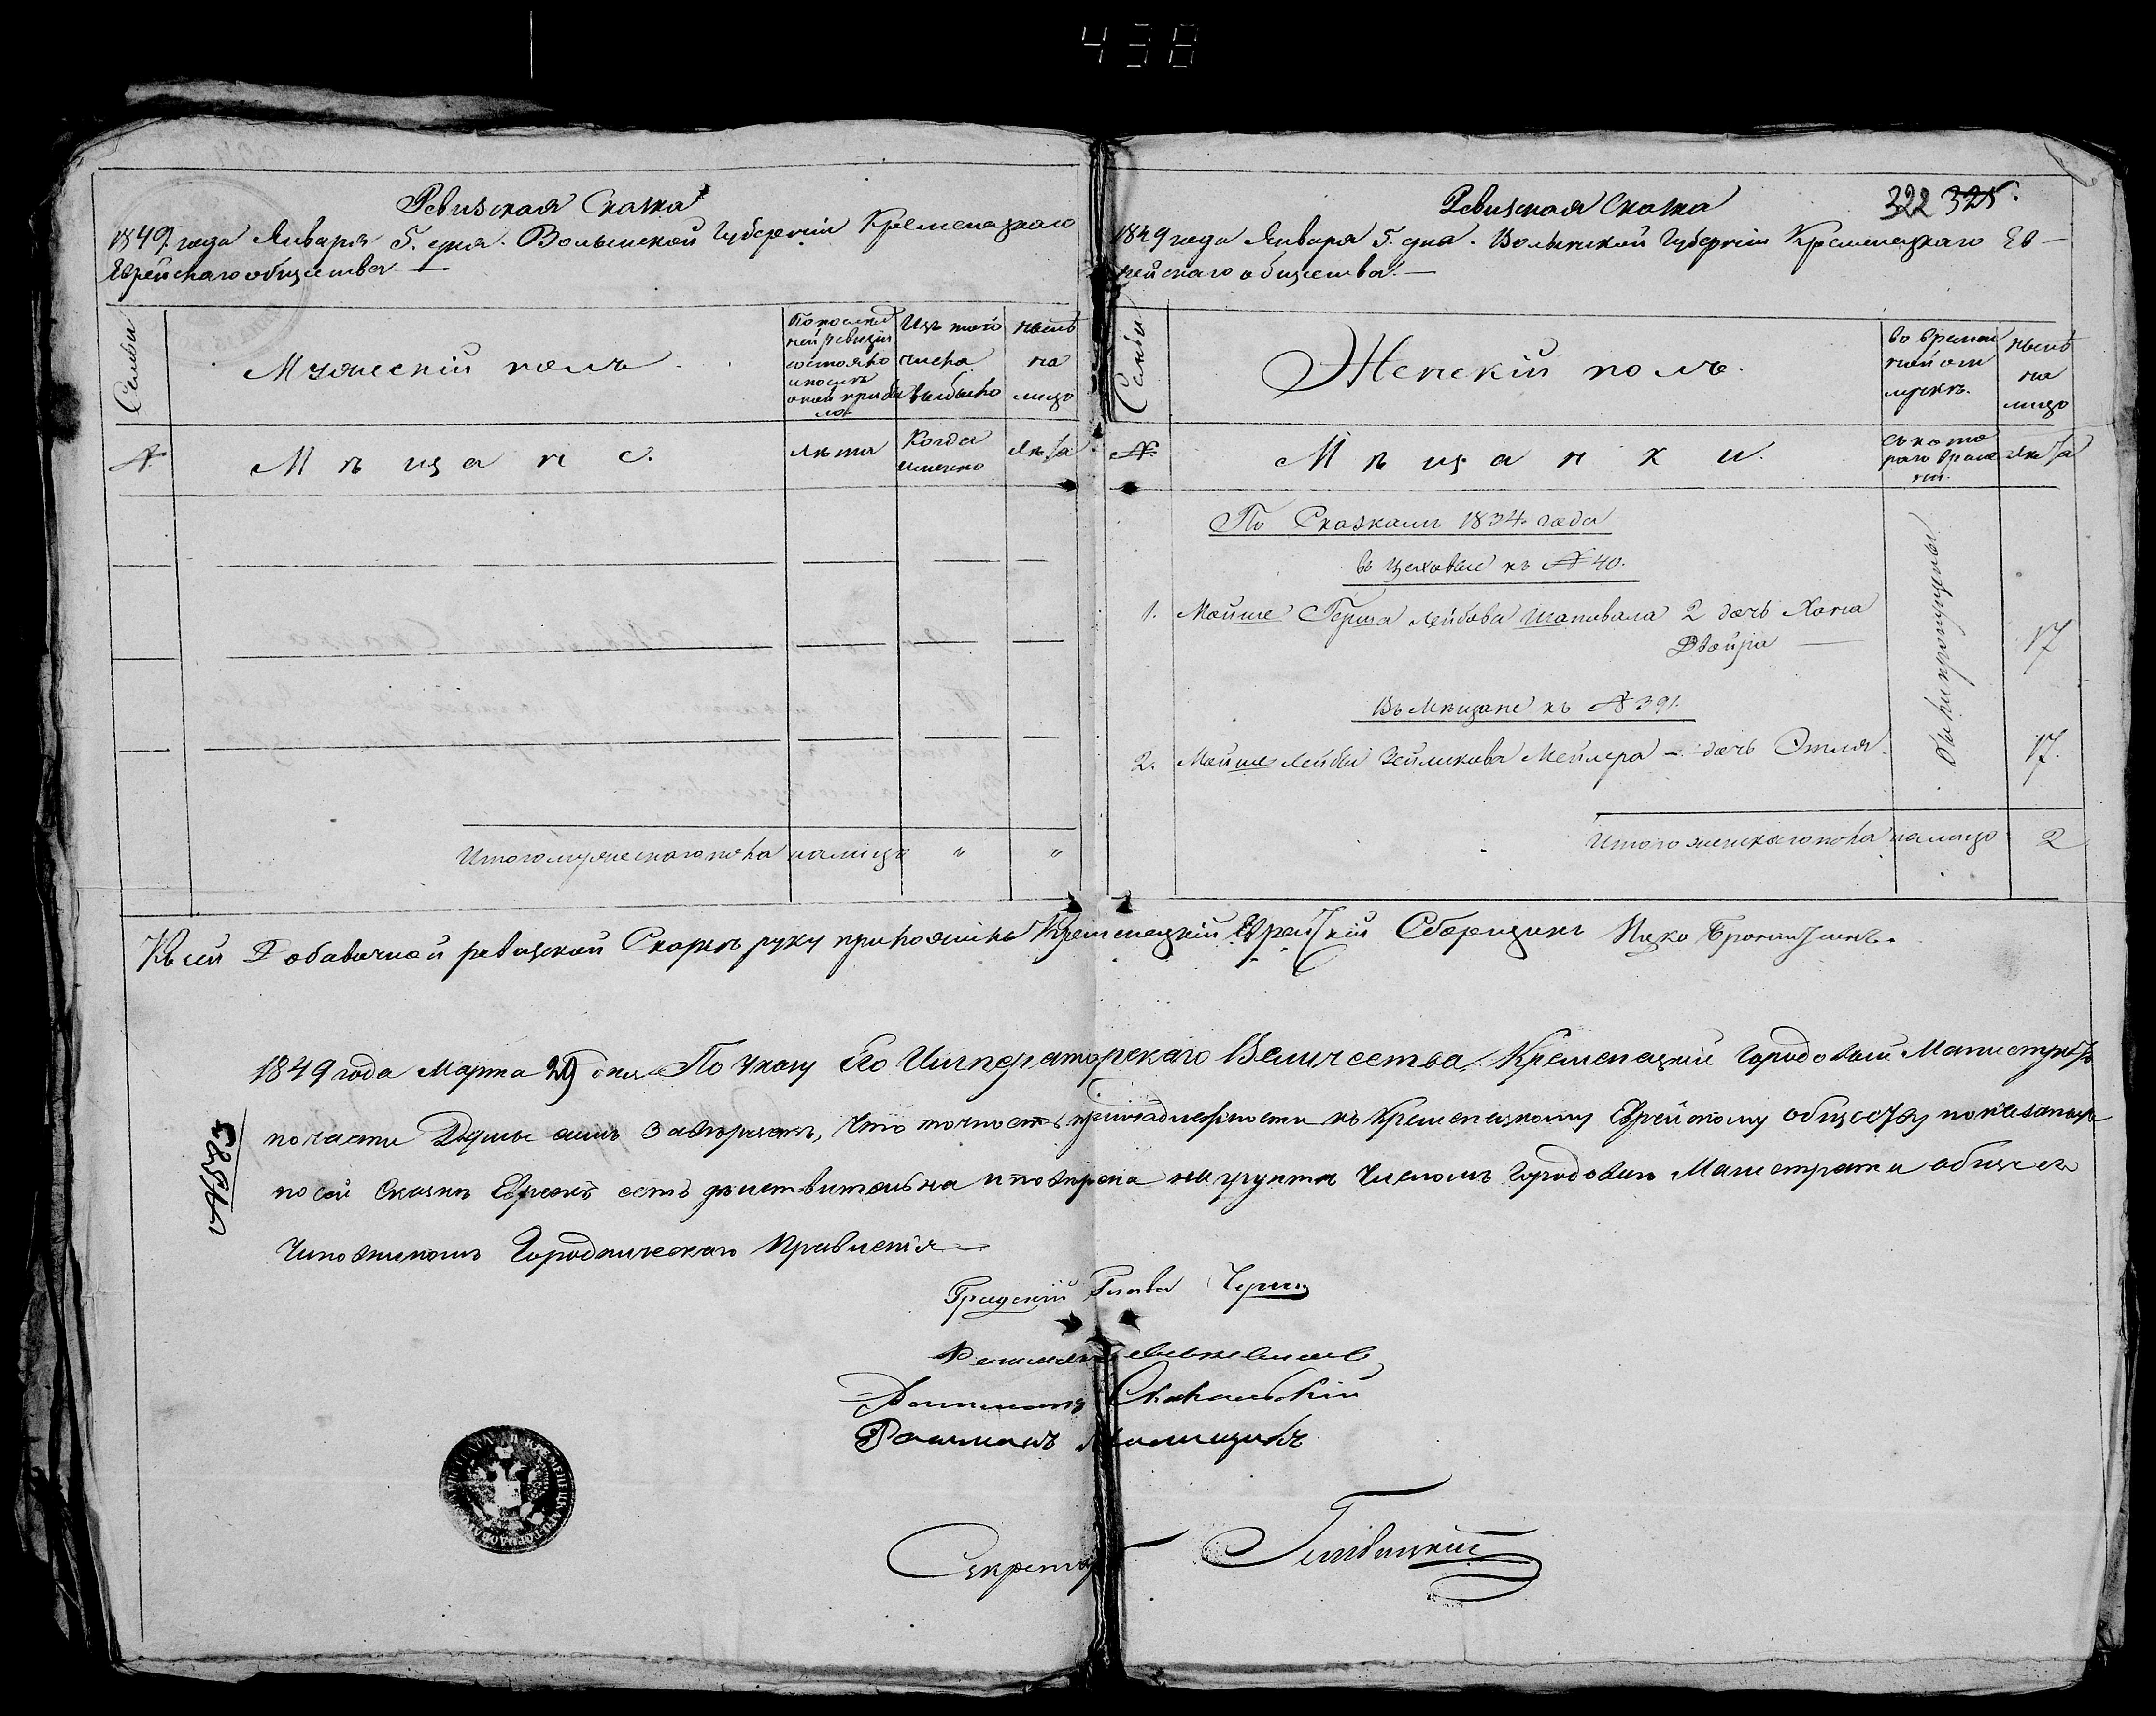 438
Ревизская Сказка
1849. года Января 5. дня. Волынской Губерніи Кременецкаго
Еврейскаго общества
Семьи
Мужескій полъ
По послед
ней ревизіи
состояло
и после
оной прибы
ло
Изъ того
числа
выбыло
ныне
на
лицо
№
Мѣщане.
Лѣта
Когда
именно
Лѣта
Итого мужескаго пола на лицо " "
322 325.
Ревизская Сказка
1849 года Января 5. дня. Волынской Губерніи Кременецкаго Ев-
рейскаго общества.
Семьи
Женскій полъ.
во времен
ной от
лучкѣ.
нынѣ
на
лицо
№
Мѣщанки.
съ кото
раго време
ни.
Лѣта
По Сказкамъ 1834. года
въ цеховые къ № 40.
1. Мойше Герша Лейбова Шаповала 2 дочь Хана
Двойра 17
Въ Мѣщане къ № 391.
2. Мойше Лейбы Зейликова Мейлера – дочь Этля. 17.
были пропущены
Итого женскаго пола на лицо 2
Къ сей Добавочной ревизской Сказкѣ руку приложилъ Кременецкій Еврейскій Сборщикъ Ицко
1849 года Марта 29 дня По указу Его Императорскаго Величества Кременецкій Городовый Магистратъ
по части симъ завѣряетъ, что точность принадлежности къ Кременецкому Еврейскому обществу показаныхъ
по сей Сказкѣ Евреекъ есть действительна и поверена на грунтѣ Членомъ Городоваго Магистрата обще съ
Чиновникомъ Городническаго Правленія
№ 583
Градскій Глава
Ратманъ
Секретарь